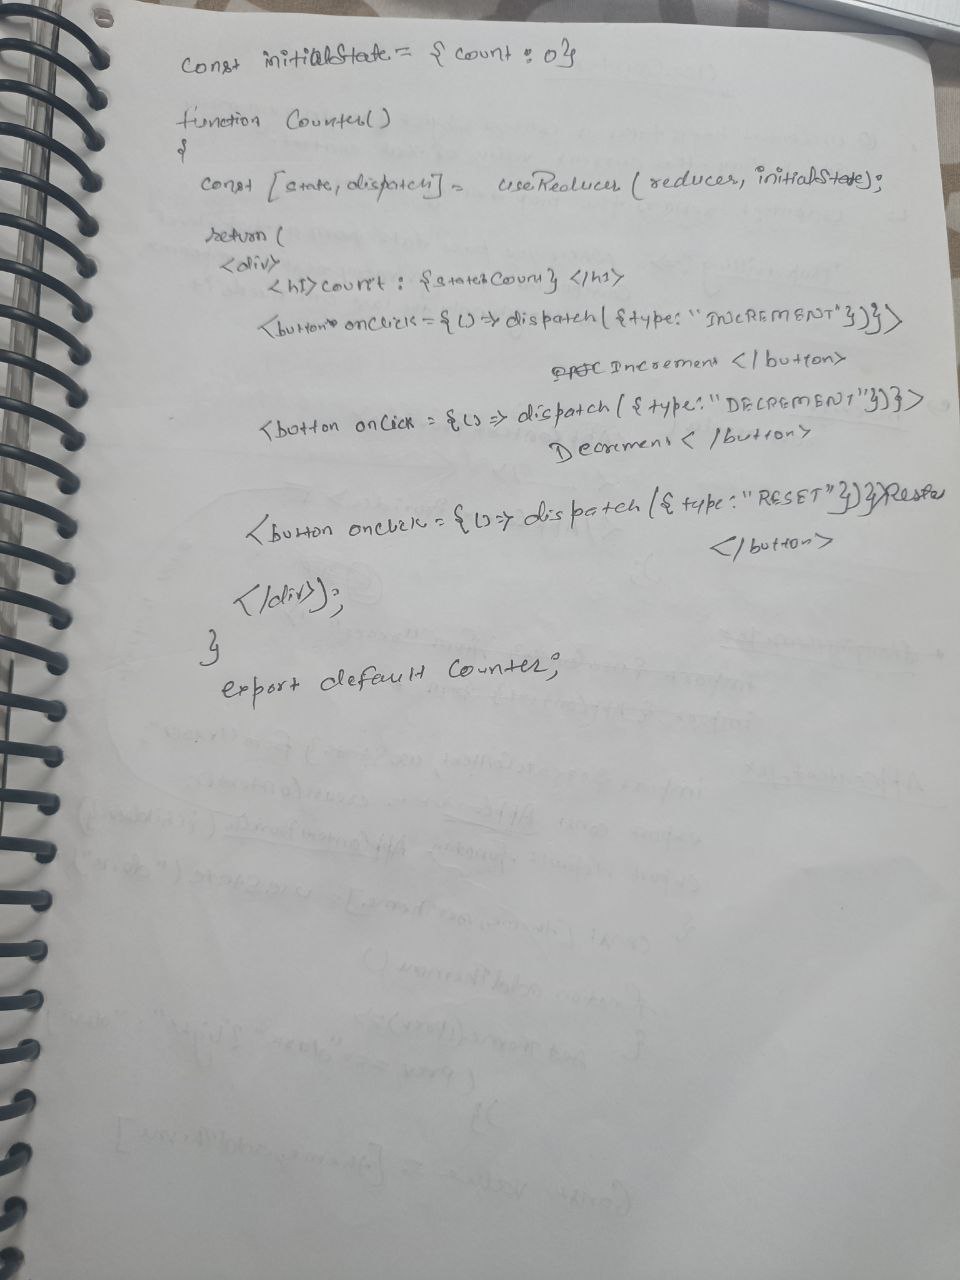 const initialState = { count : 0}
function Counter()
{
const [state, dispatch] = useReducer ( reducer, initialState);
return (
<div>
<h1> count : {state.count} </h1>
<button onclick = { () => dispatch ( { type: "INCREMENT" })}>
Increment </button>
<button onclick = { () => dispatch ( { type: "DECREMENT" })}>
Decrement < /button>
<button onclick = { () => dispatch ( { type: "RESET" })}>
</button>
</div>);
}
export default Counter;